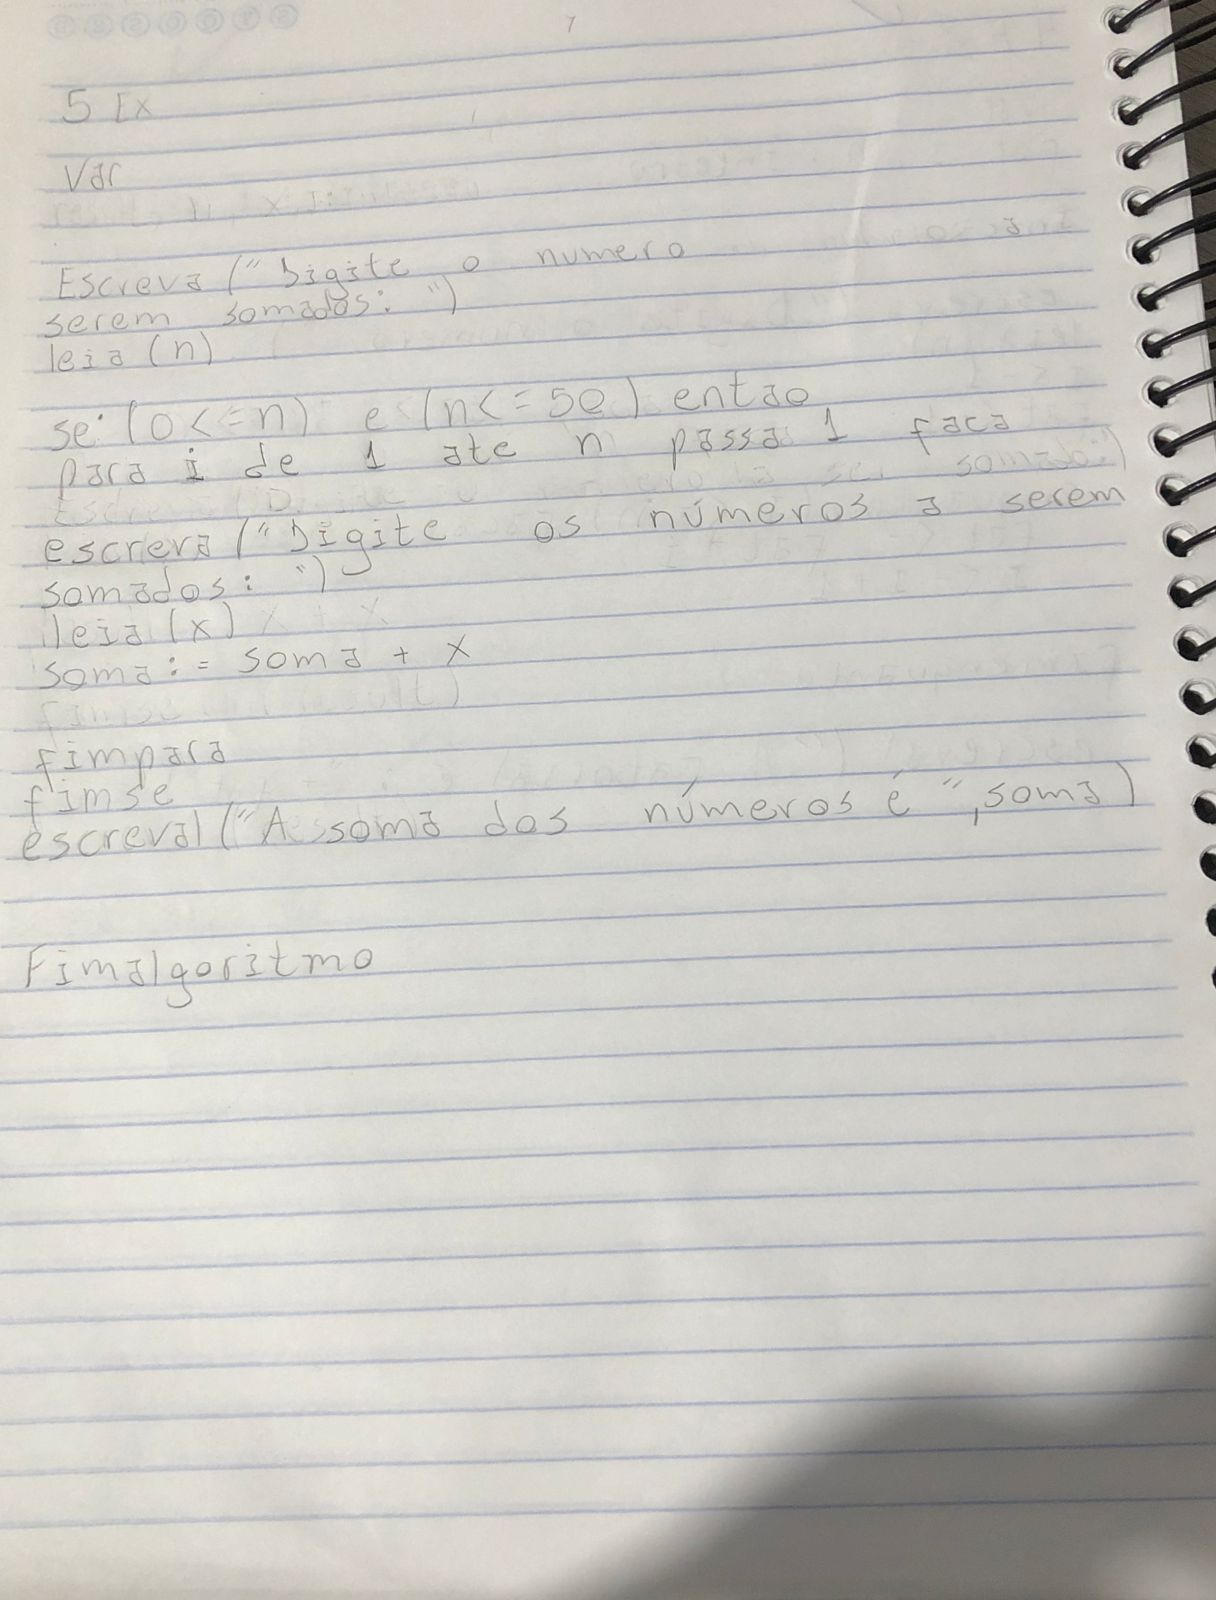 5 Ex
Var
Escreva ("Digite o numero a
serem somados: ")
leia (n)
se: (0 <= n) e (n <= 50) entao
para i de 1 ate n passa 1 faca
escreva ("Digite os números a serem
somados: ")
leia (x)
soma := soma + x
fimpara
fimse
escreval ("A soma dos números é ", soma)
Fimalgoritmo